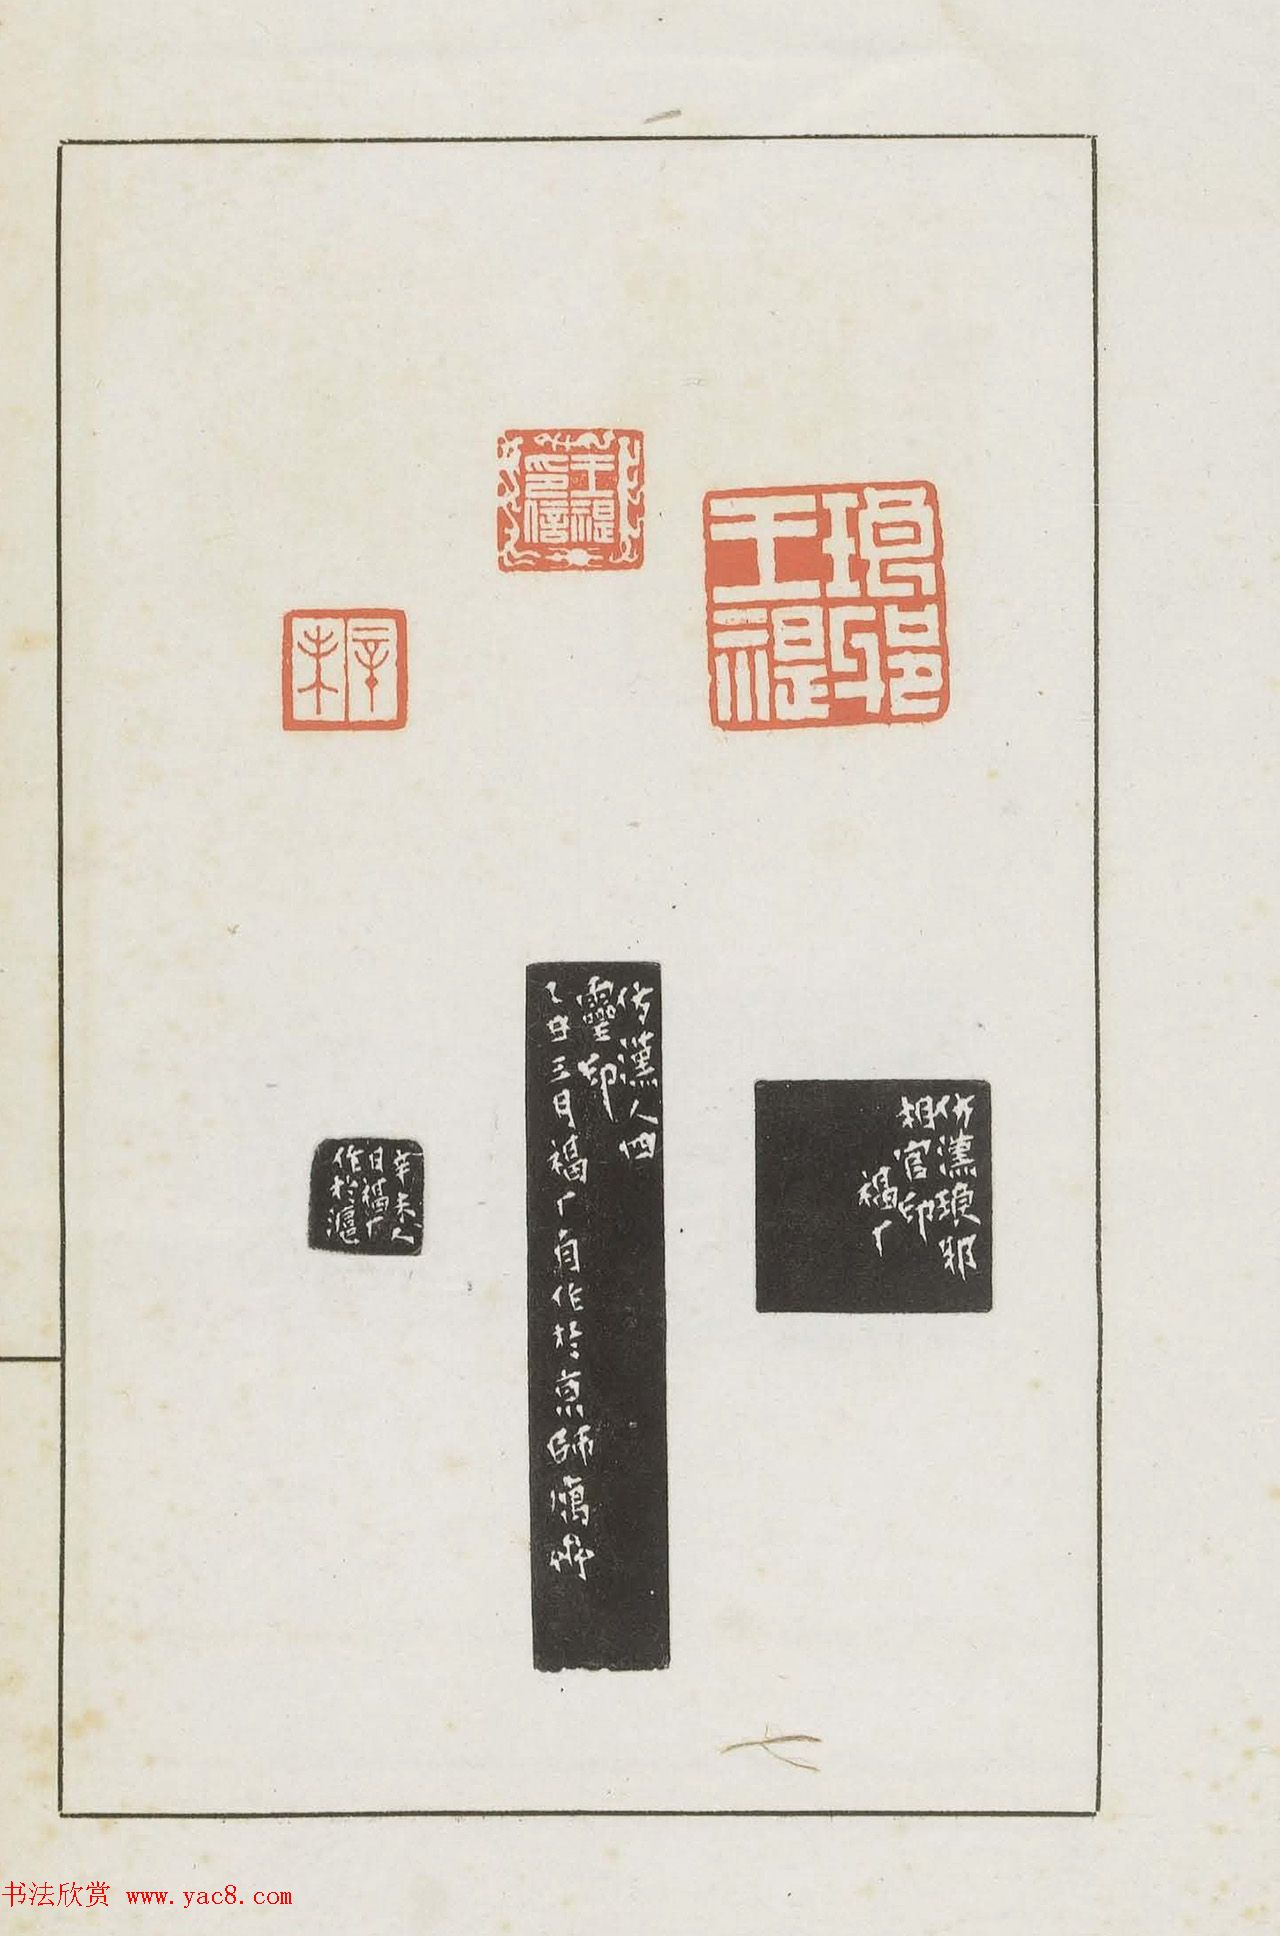 琅邪
王禔
王禔
印信
辛未
仿漢琅邪
相官印
福厂
仿漢人四
靈印
乙丑三月福厂自作於京師寓齋
辛未人
日福厂
作於滬
书法欣赏 www.yac8.com